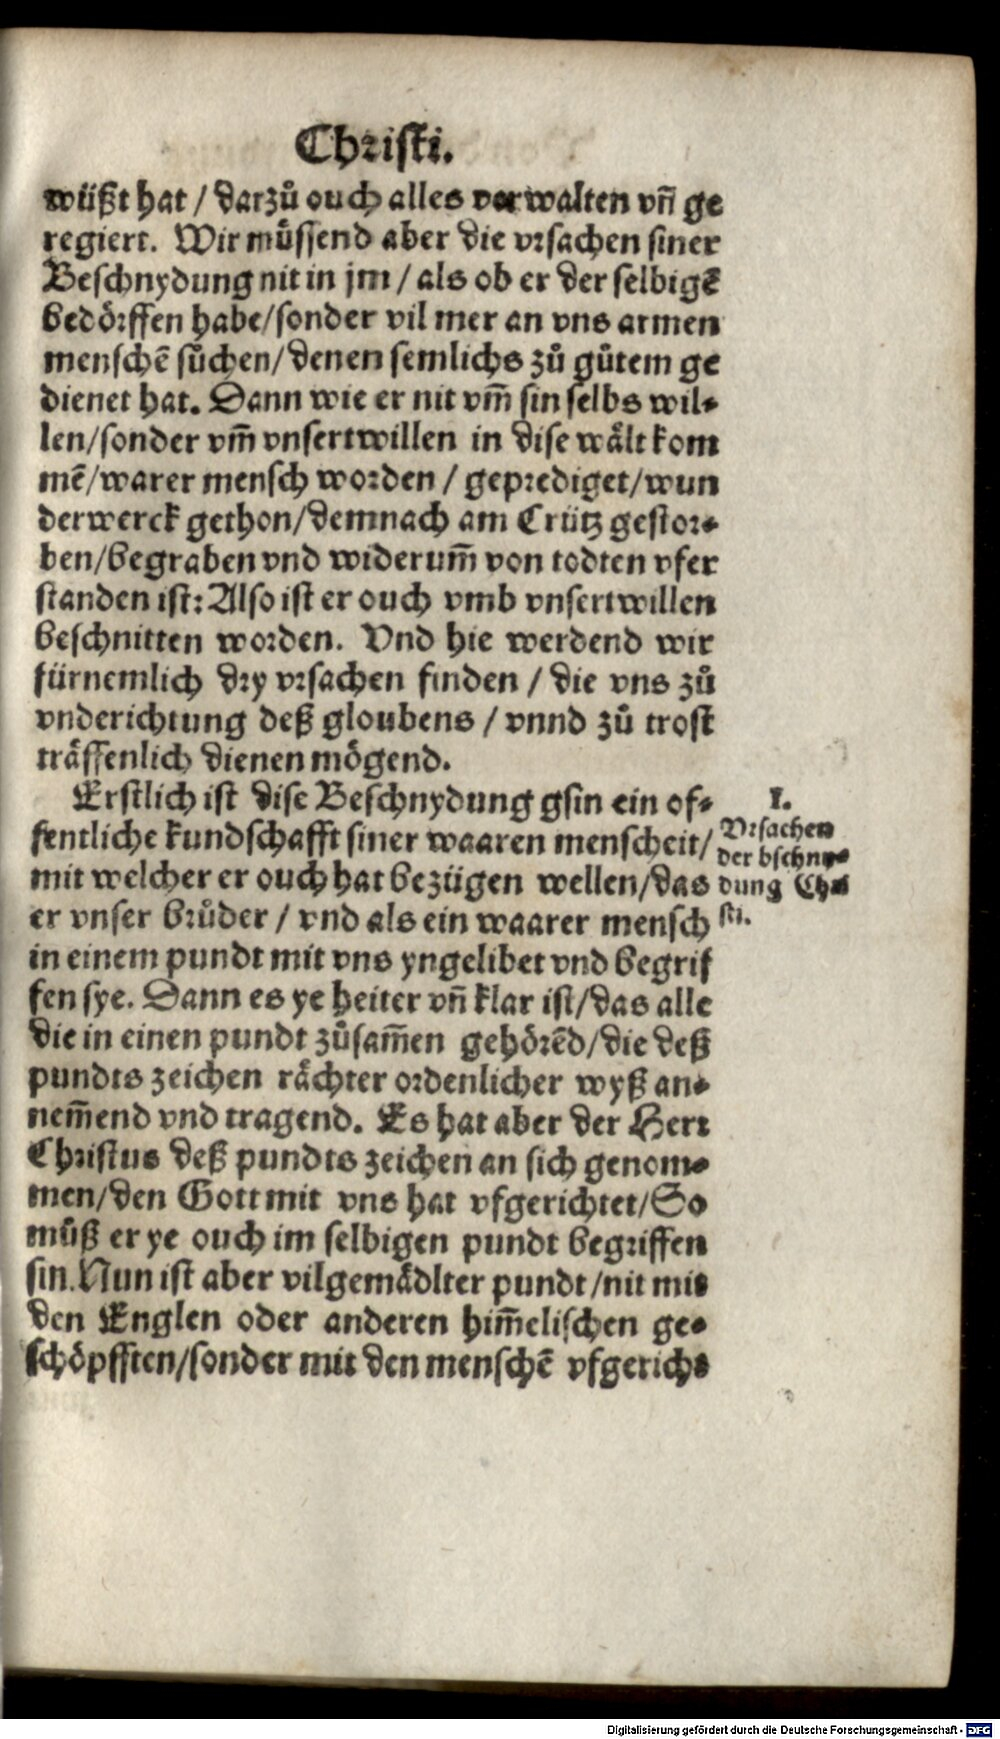 Christi.
wüßt hat / darzů ouch alles verwalten vñ ge
regiert. Wir müssend aber die vrsachen siner
Beschnydung nit in jm / als ob er der selbigẽ
bedörffen habe/sonder vil mer an vns armen
menschẽ sůchen/denen semlichs zů gůtem ge
dienet hat. Dann wie er nit vm̃ sin selbs wil-
len/sonder vm̃ vnsertwillen in dise wält kom
mẽ/warer mensch worden / geprediget/wun
derwerck gethon/demnach am Crütz gestor-
ben/begraben vnd widerum̃ von todten vfer
standen ist: Also ist er ouch vmb vnsertwillen
beschnitten worden. Vnd hie werdend wir
fürnemlich dry vrsachen finden / die vns zů
vnderichtung deß gloubens / vnnd zů trost
träffenlich dienen mögend.
Erstlich ist dise Beschnydung gsin ein of-
fentliche kundschafft siner waaren menscheit/
mit welcher er ouch hat bezügen wellen/das
er vnser brůder / vnd als ein waarer mensch
in einem pundt mit vns yngelibet vnd begrif
fen sye. Dann es ye heiter vñ klar ist/das alle
die in einen pundt zůsam̃en gehörẽd/die deß
pundts zeichen rächter ordenlicher wyß an-
nem̃end vnd tragend. Es hat aber der Herr
Christus deß pundts zeichen an sich genom-
men/den Gott mit vns hat vfgerichtet/So
můß er ye ouch im selbigen pundt begriffen
sin. Nun ist aber vilgemädlter pundt/nit mit
den Englen oder anderen him̃elischen ge-
schöpfften/sonder mit den menschẽ vfgericht
I.
Vrsachen
der bschny-
dung Chri
sti.
Digitalisierung gefördert durch die Deutsche Forschungsgemeinschaft - DFG